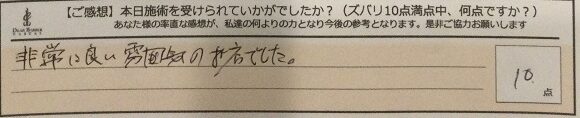 【ご感想】本日施術を受けられていかがでしたか?(ズバリ10点満点中、何点ですか?)
あなた様の率直な感想が、私達の何よりの力となり今後の参考となります。是非ご協力お願いします
非常に良い雰囲気のお店でした。
10
点